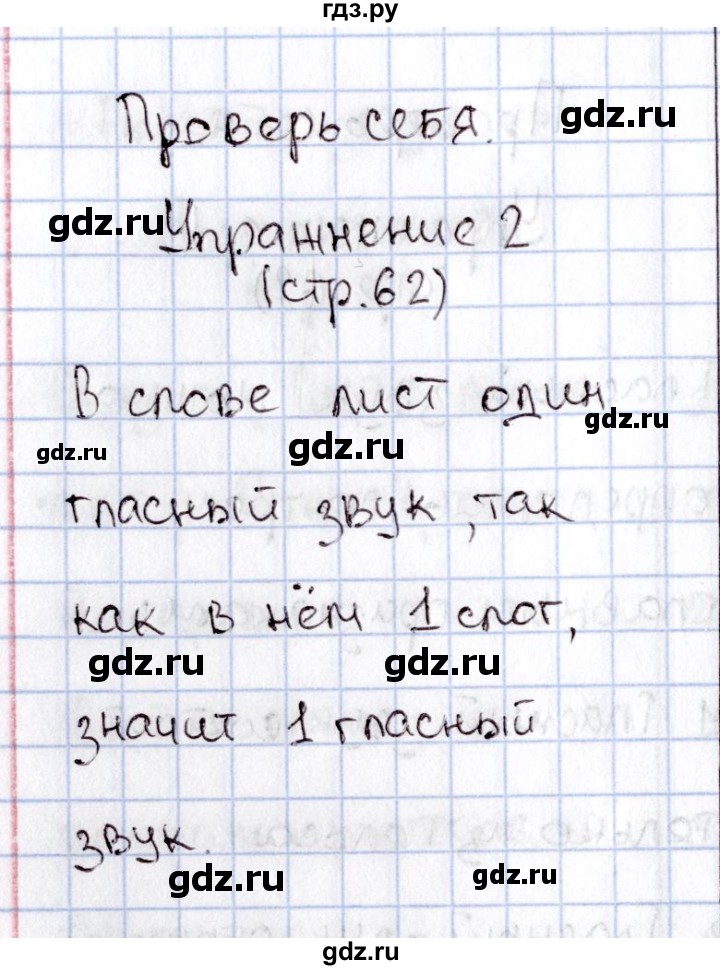 гдз.ру
Проверь себя.
gdz.ru
gdz.ru
Упражнение 2
(стр.62)
В слове лист один
gdz.ru
gdz.ru
gdz.ru
гласный звук, так
как в нём 1 слог,
gdz.ru
gdz.ru
значит 1 гласный
звук.
gdz.ru
gdz.ru
gdz.ru